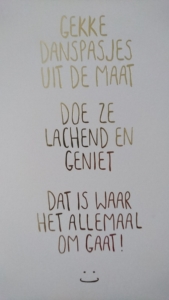 GEKKE
DANSPASJES
UIT DE MAAT
DOE ZE
LACHEND EN
GENIET
DAT IS WAAR
HET ALLEMAAL
OM GAAT!